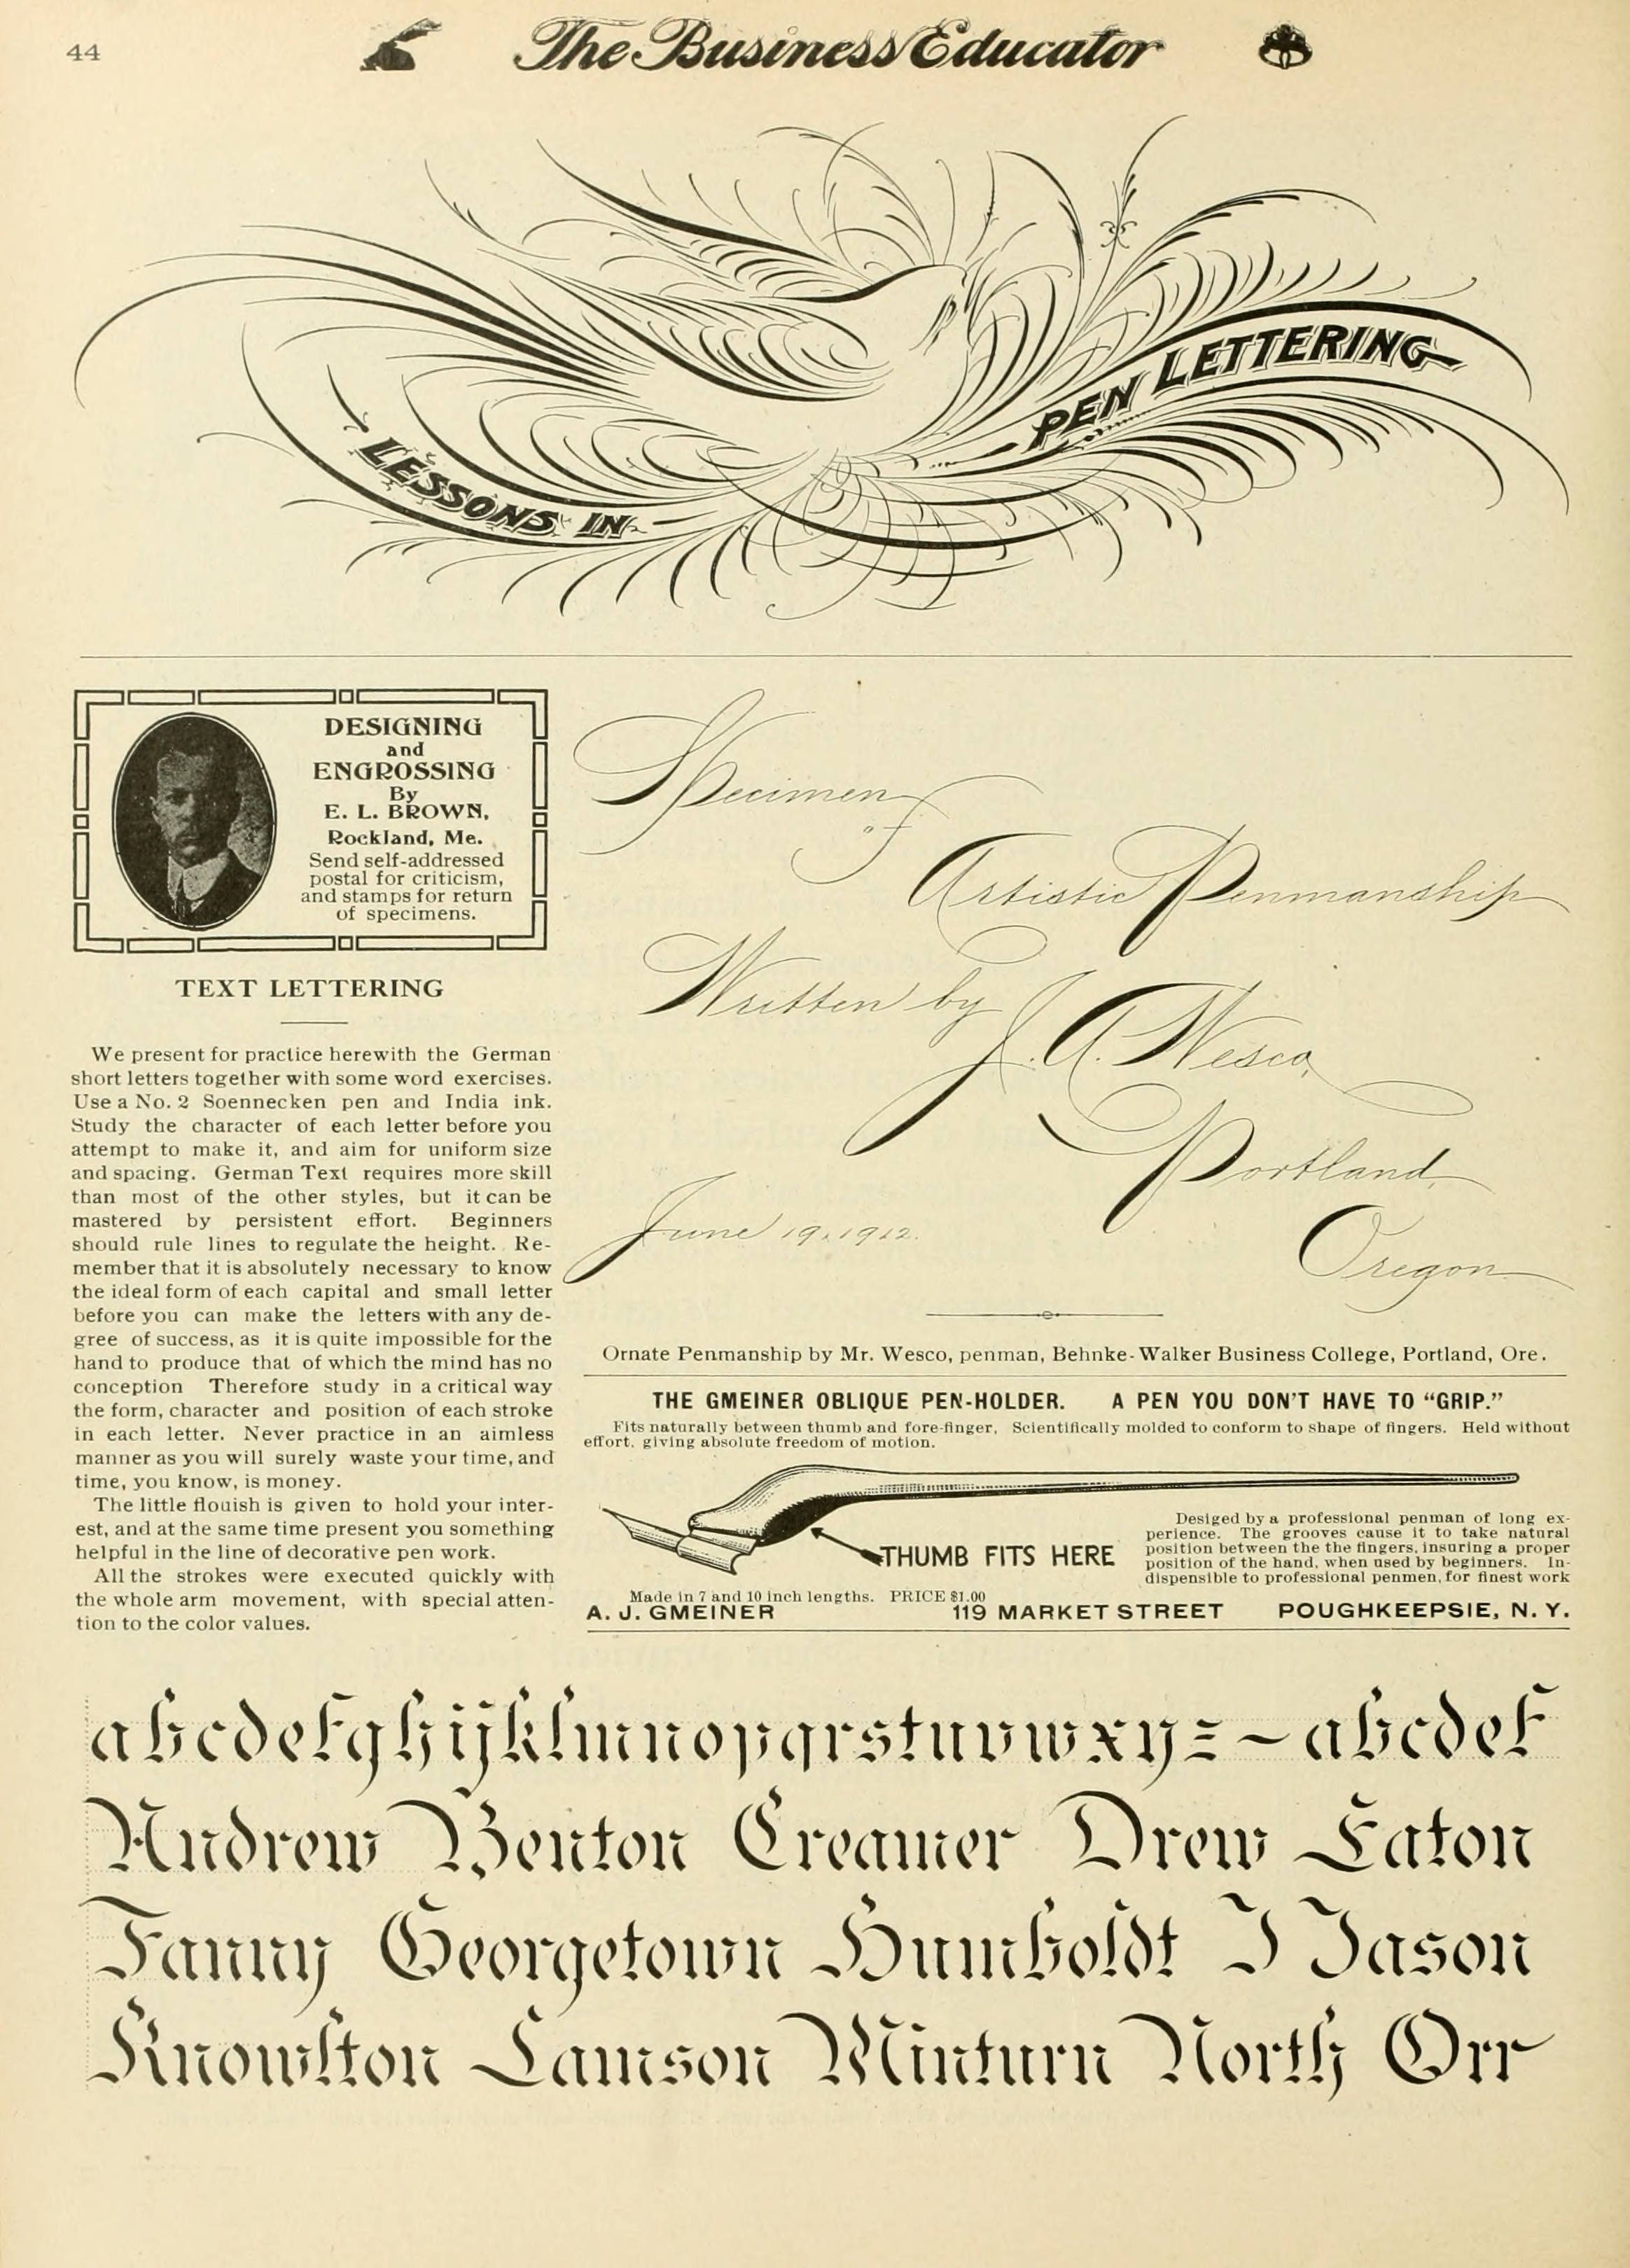 44
The Business Educator
LESSONS IN
PEN LETTERING
DESIGNING
and
ENGROSSING
By
E. L. BROWN,
Rockland, Me.
Send self-addressed
postal for criticism,
and stamps for return
of specimens.
TEXT LETTERING
We present for practice herewith the German
short letters together with some word exercises.
Use a No. 2 Soennecken pen and India ink.
Study the character of each letter before you
attempt to make it, and aim for uniform size
and spacing. German Text requires more skill
than most of the other styles, but it can be
mastered by persistent effort. Beginners
should rule lines to regulate the height. Re-
member that it is absolutely necessary to know
the ideal form of each capital and small letter
before you can make the letters with any de-
gree of success, as it is quite impossible for the
hand to produce that of which the mind has no
conception Therefore study in a critical way
the form, character and position of each stroke
in each letter. Never practice in an aimless
manner as you will surely waste your time, and
time, you know, is money.
The little flouish is given to hold your inter-
est, and at the same time present you something
helpful in the line of decorative pen work.
All the strokes were executed quickly with
the whole arm movement, with special atten-
tion to the color values.
Specimen
of
Artistic Penmanship
Written by
J. A. Wesco,
Portland,
June 19, 1912.
Oregon
Ornate Penmanship by Mr. Wesco, penman, Behnke-Walker Business College, Portland, Ore.
THE GMEINER OBLIQUE PEN-HOLDER. A PEN YOU DON'T HAVE TO "GRIP."
Fits naturally between thumb and fore-finger, Scientifically molded to conform to shape of fingers. Held without
effort, giving absolute freedom of motion.
THUMB FITS HERE
Desiged by a professional penman of long ex-
perience. The grooves cause it to take natural
position between the the fingers, insuring a proper
position of the hand, when used by beginners. In-
dispensible to professional penmen, for finest work
Made in 7 and 10 inch lengths. PRICE $1.00
A. J. GMEINER 119 MARKET STREET POUGHKEEPSIE, N. Y.
abcdefghijklmnopqrstuvwxyz ~ abcdef
Andrew Benton Creamer Drew Eaton
Fanny Georgetown Humboldt I Jason
Knowlton Lamson Minturn North Orr